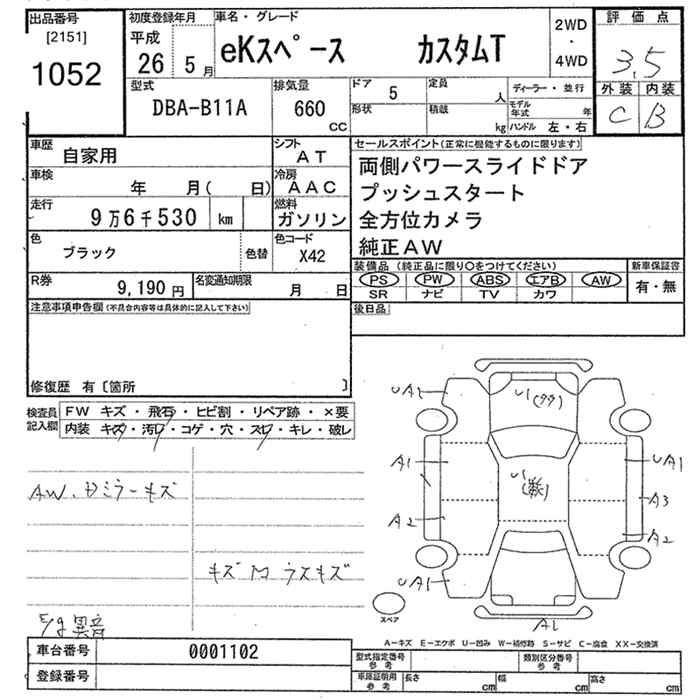 出品番号
[2151]
1052
初度登録年月
平成
26 5 月
車名・グレード
eKスペース カスタムT
2WD
・
4WD
評価点
3,5
外装 内装
C B
型式
DBA-B11A
排気量
660
CC
ドア
5
形状
定員
人
積載
kg
ディーラー・並行
モデル年式 年
ハンドル 左・右
車歴
自家用
シフト
AT
車検
年 月( 日)
冷房
AAC
走行
9万6千530 km
燃料
ガソリン
色
ブラック
色替
色コード
X42
R券
9,190 円
名変通知期限
月 日
セールスポイント(正常に機能するものに限ります)
両側パワースライドドア
プッシュスタート
全方位カメラ
純正AW
装備品 (純正品に限り○をつけてください)
PS PW ABS エアB AW
SR ナビ TV カワ
新車保証書
有・無
後日品
注意事項申告欄(不具合内容等は具体的に記入して下さい)
修復歴 有〔箇所 〕
検査員
記入欄
FW キズ・飛石・ヒビ割・リペア跡・×要
内装 キズ・汚レ・コゲ・穴・スレ・キレ・破レ
AW、Dミラーキズ
キズ M ウスキズ
E/g異音
UA1
U1
A1
A2
UA1
U1
UA1
A3
A2
A1
スペア
A-キズ E-エクボ U-凹み W-補修跡 S-サビ C-腐食 XX-交換済
車台番号 0001102
登録番号
型式指定番号
参考
類別区分番号
参考
車庫証明用
参考
長さ cm 幅 cm 高さ cm